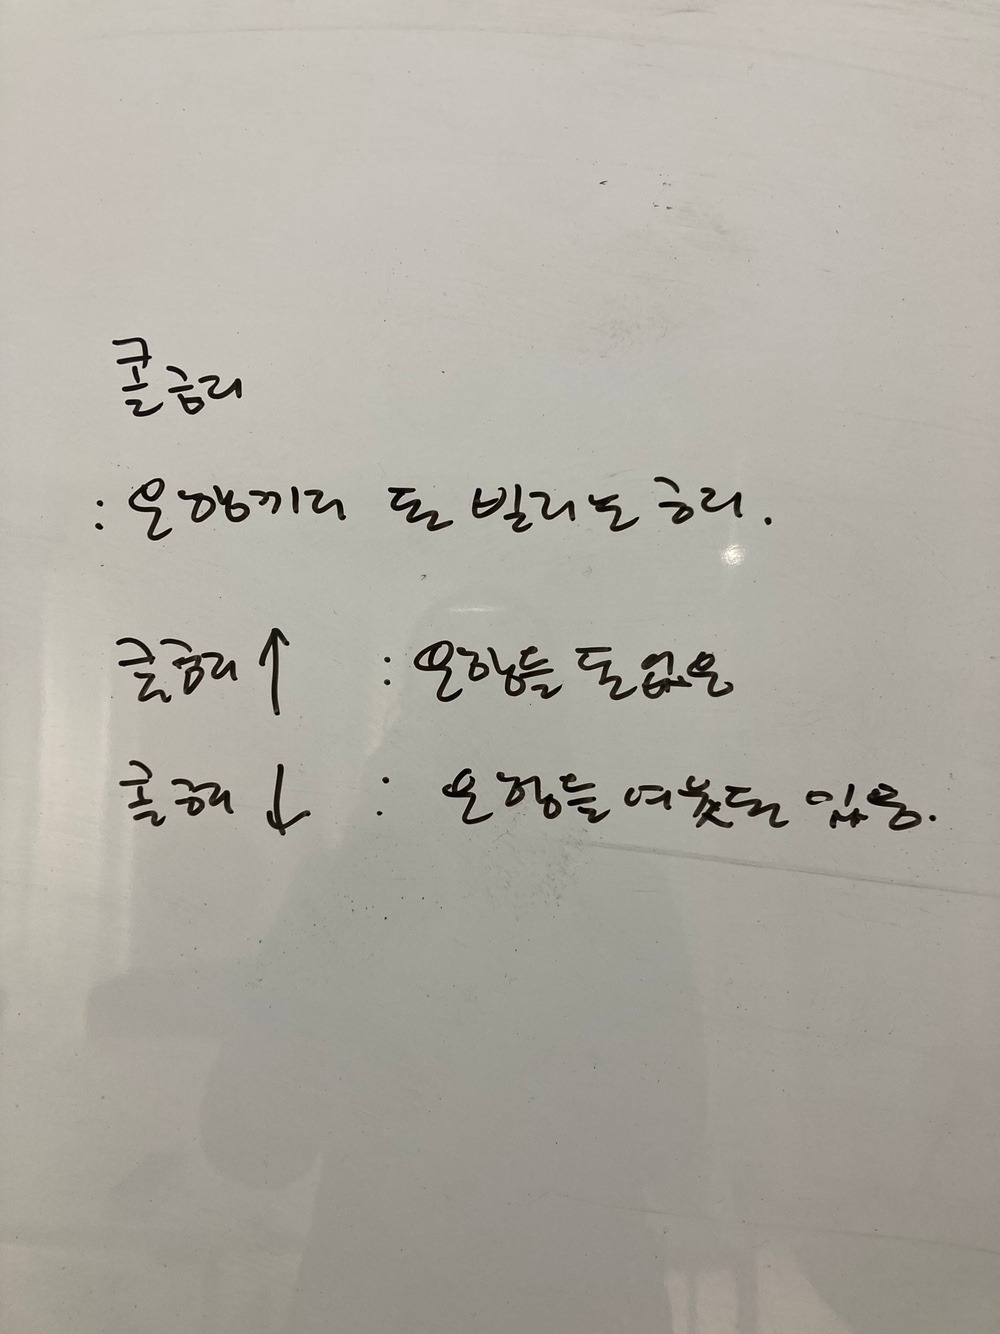 콜금리
: 은행끼리 돈 빌리는 금리.
콜금리 ↑ : 은행들 돈없음
콜금리 ↓ : 은행들 여윳돈 있음.